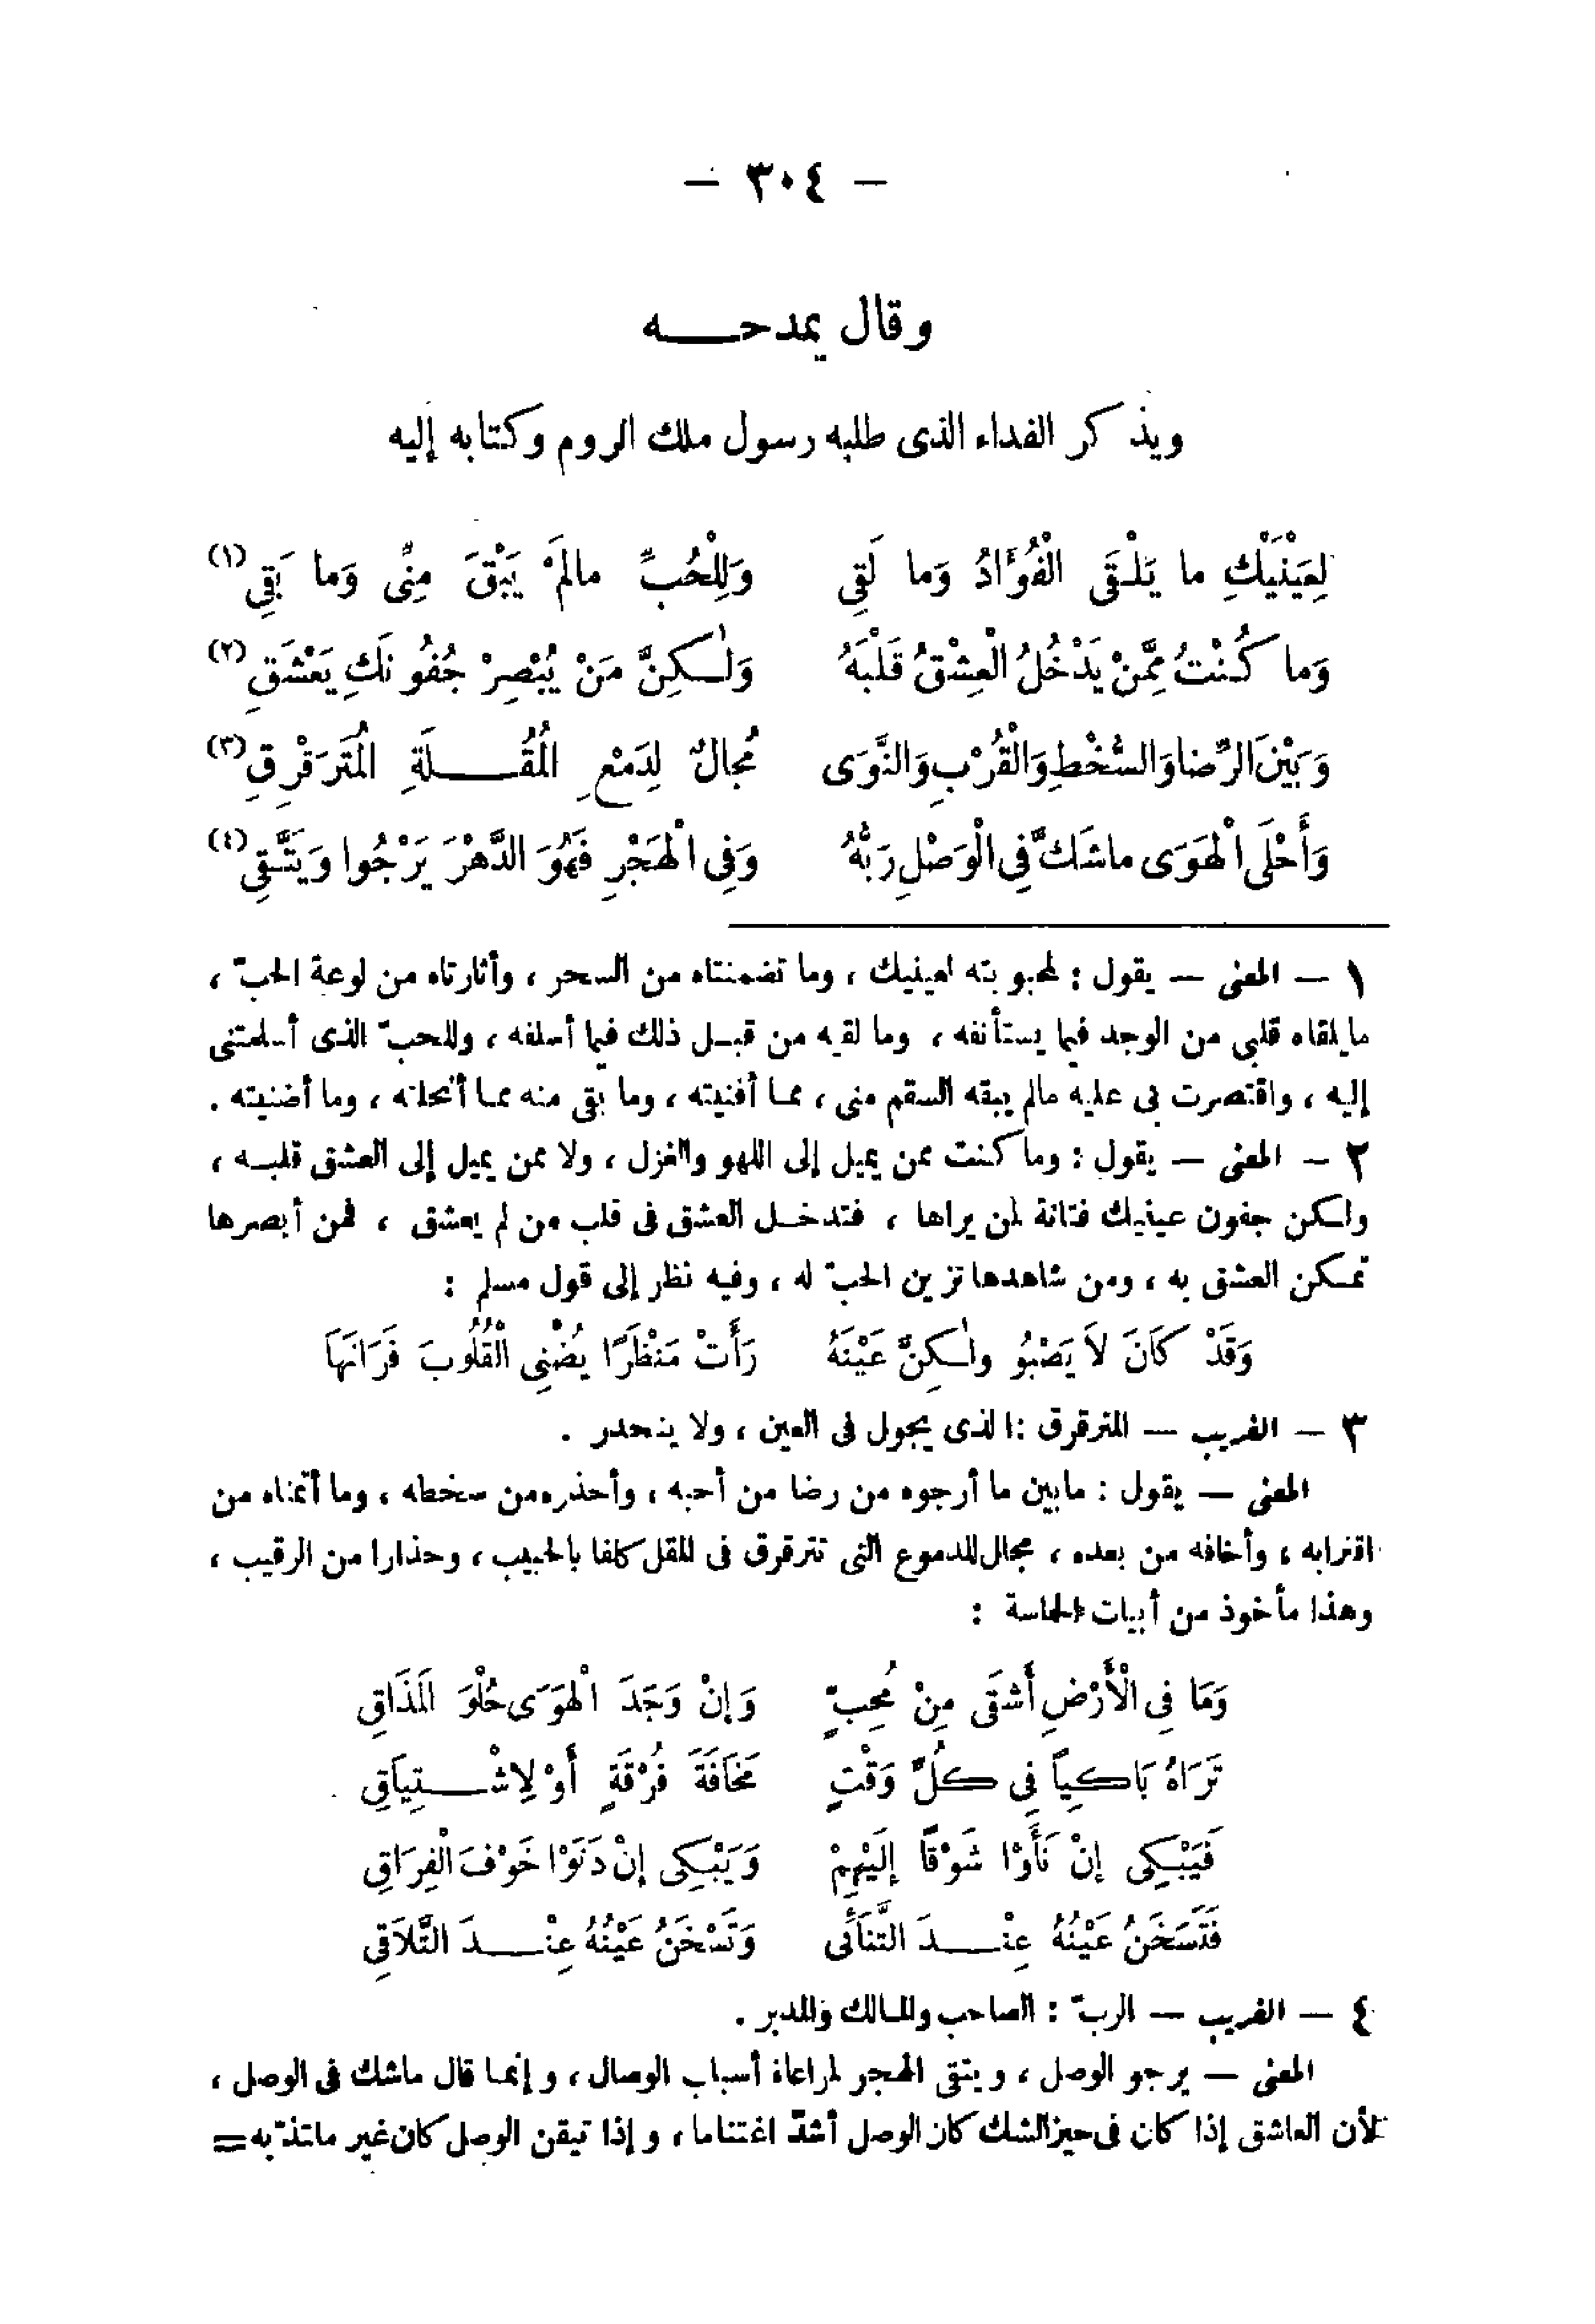 — ٣٠٤ —
وقال يمدحـــه
ويذكر الفداء الذى طلبه رسول ملك الروم وكتابه إليه
لِعَيْنَيْكِ ما يَلْـقَى الْفُؤَادُ وَما لَقِى وَلِلْحُبِّ مالَمْ يَبْقَ مِنِّى وَما بَقِى (١)
وَما كُنْتُ مِمَّنْ يَدْخُلُ الْعِشْقُ قَلْبَهُ وَلٰـكِنَّ مَنْ يُبْصِرْ جُفُونَكِ يَعْشَقِ (٢)
وَبَيْنَ الرِّضا وَالسُّخْطِ وَالْقُرْبِ وَالنَّوَى مَجالٌ لِدَمْعِ الْمُقْـــلَةِ الْمُتَرَقْرِقِ (٣)
وَأَحْلَى الْهَوَى ماشَكَّ فِى الْوَصْلِ رَبُّهُ وَفِى الْهَجْرِ فَهُوَ الدَّهْرَ يَرْجُوا وَيَتَّـقِى (٤)
١ — المعنى — يقول : لمحبوبته لعينيك ، وما تضمنتاه من السحر ، وأثارتاه من لوعة الحبّ ،
مايلقاه قلبى من الوجد فيما يستأنفه ، وما لقيه من قبـل ذلك فيما أسلفه ، وللحبّ الذى أسلمتنى
إليه ، واقتصرت بى عليه مالم يبقه السقم منى ، ممـا أفنيته ، وما بقى منه ممـا أنحلته ، وما أضنيته .
٢ — المعنى — يقول : وما كنت ممن يميل إلى اللهو والغزل ، ولا ممن يميل إلى العشق قلبـه ،
ولـكن جفون عينيك فتانة لمن يراها ، فتدخـل العشق فى قلب من لم يعشق ، فمن أبصرها
تمـكن العشق به ، ومن شاهدها تزين الحبّ له ، وفيه نظر إلى قول مسلم :
وَقَدْ كَانَ لاَ يَصْبُو ولٰـكِنَّ عَيْنَهُ رَأَتْ مَنْظَرًا يُضْنِى الْقُلُوبَ فَرَانَهَا
٣ — الغريب — المترقرق : الذى يجول فى العين ، ولا ينحدر .
المعنى — يقول : مابين ما أرجوه من رضا من أحبه ، وأحذره من سخطه ، وما أتمناه من
اقترابه ، وأخافه من بعده ، مجال للدموع التى تترقرق فى المقل كلفا بالحبيب ، وحذارا من الرقيب ،
وهذا مأخوذ من أبيات الحماسة :
وَمَا فِى الْأَرْضِ أَشقَى مِنْ مُحِبّ وَإِنْ وَجَدَ الْهَوَى حُلْوَ الْمَذَاقِ
تَرَاهُ بَاكِياً فِى كُلِّ وَقْتٍ مَخَافَةَ فُرْقَةٍ أَوْ لِاشْـــتِيَاقِ
فَيَبْـكِى إِنْ نَأَوْا شَوْقًا إِلَيْهِمْ وَيَبْـكِى إِنْ دَنَوْا خَوْفَ الْفِرَاقِ
فَتَسْخَنُ عَيْنُهُ عِنْـــدَ التَّنَائِى وَتَسْخَنُ عَيْنُهُ عِنْـــدَ التَّلاَقِى
٤ — الغريب — الربّ : الصاحب والمـالك والمدبر .
المعنى — يرجو الوصل ، ويتقى الهجر لمراعاة أسباب الوصال ، وإنمـا قال ماشك فى الوصل ،
لأن العاشق إذا كان فى حيز الشك كان الوصل أشدّ اغتناما ، وإذا تيقن الوصل كان غير ماتذّ به =